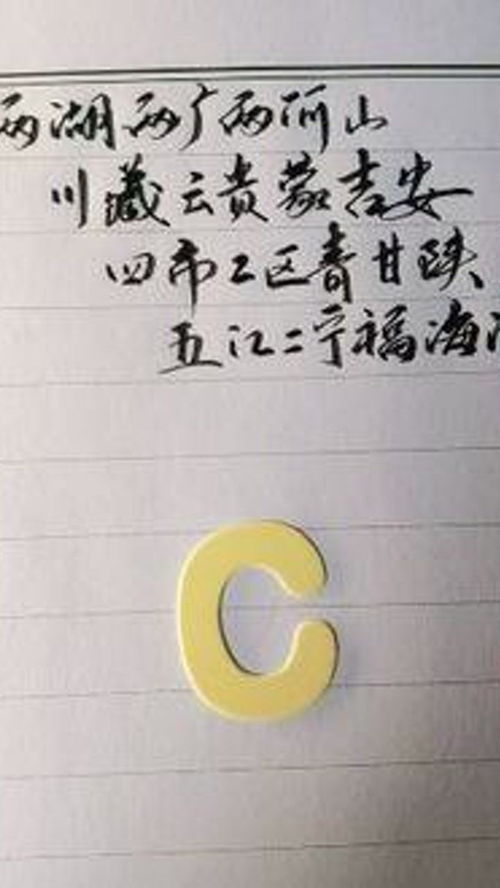 两湖两广两河山
川藏云贵蒙吉安
四市二区青甘陕
五江二宁福海
C